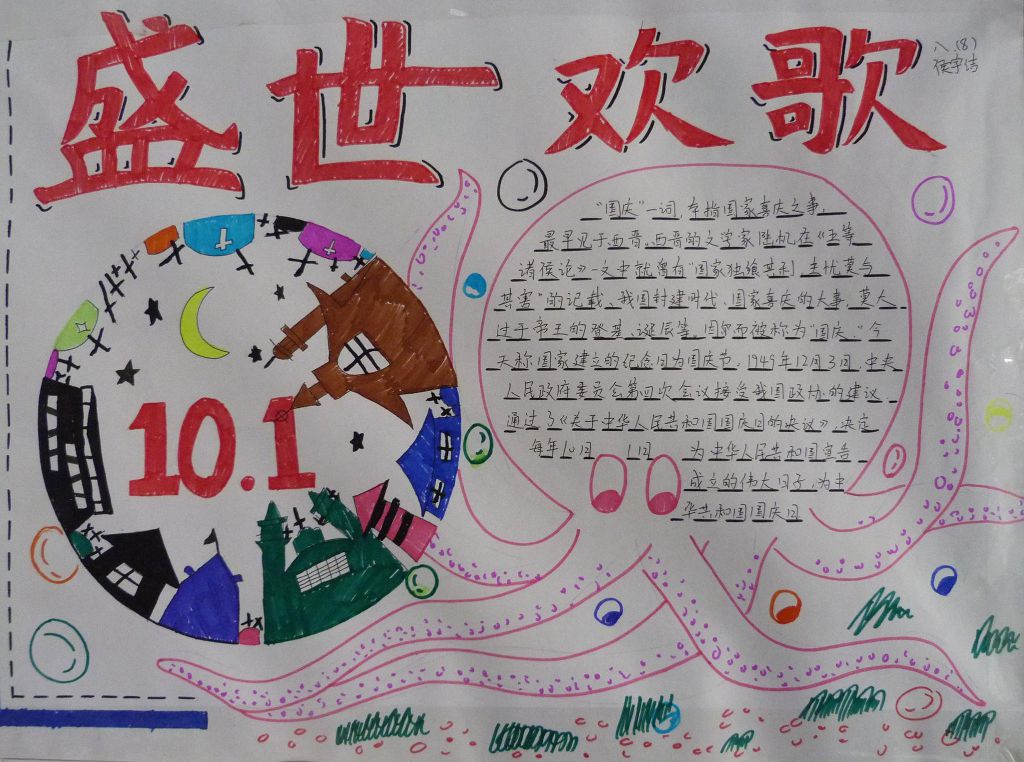 盛世欢歌
八(8)
侯宇洁
10.1
"国庆"一词,本指国家喜庆之事,
最早见于西晋。西晋的文学家陆机在《五等
诸侯论》一文中就曾有"国家独飨其利,主忧莫与
其害"的记载、我国封建时代、国家喜庆的大事,莫大
过于帝王的登基、诞辰等。因而被称为"国庆。"今
天称国家建立的纪念日为国庆节。1949年12月3日,中央
人民政府委员会第四次会议接受我国政协的建议
通过了《关于中华人民共和国国庆日的决议》,决定
每年10月 1日 为中华人民共和国宣告
成立的伟大日子,为中
华共和国国庆日